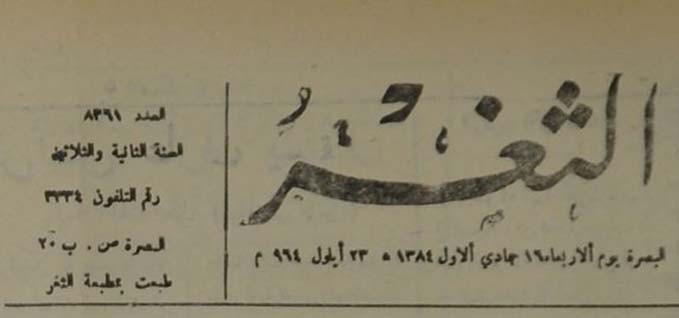 الثغر
البصرة يوم ألاربعاء ١٦ جمادي ألاول ١٣٨٤ ه ٢٣ أيلول ٩٦٤ م
العدد ٨٣٦١
السنة الثانية والثلاثين
رقم التلفون ٣٢٣٤
البصرة ص . ب ٢٠
طبعت بمطبعة الثغر